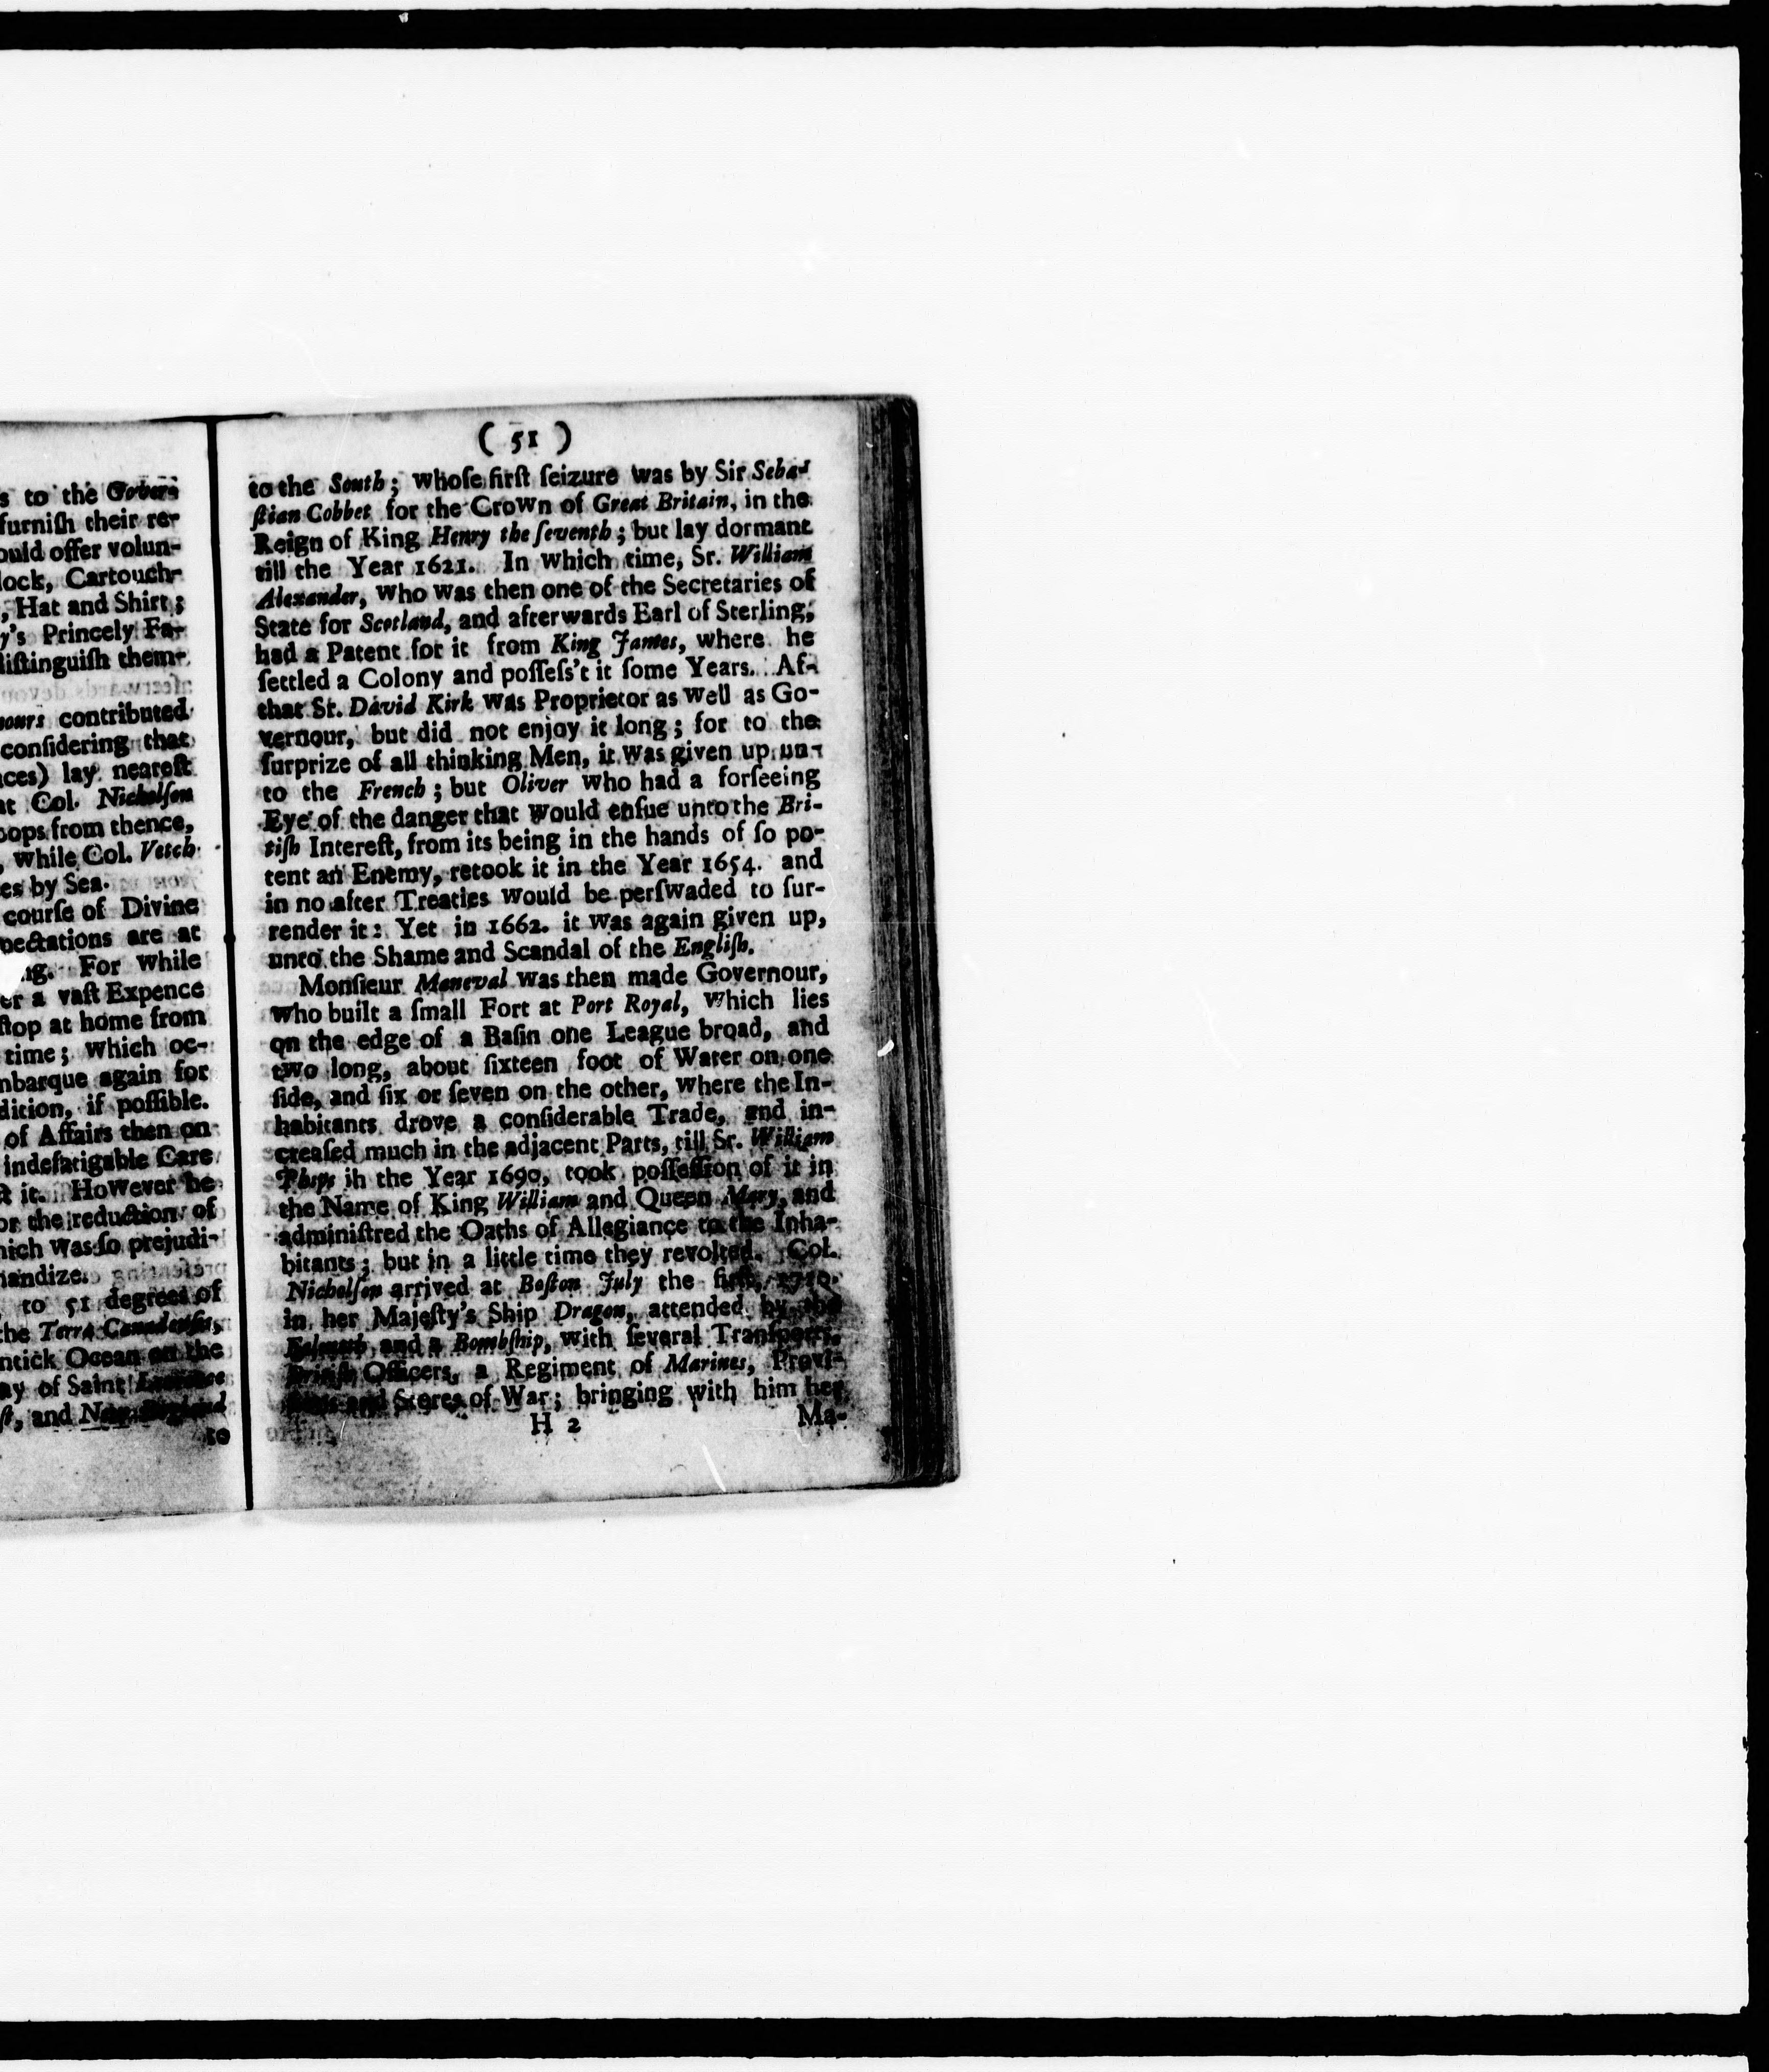 s to the Govern
furnish their re-
ould offer volun-
lock, Cartouch-
, Hat and Shirt;
y's Princely Fa-
distinguish them-
nours contributed
considering that
nces) lay nearest
at Col. Nicholson
oops from thence,
, while Col. Vetch
es by Sea.
courſe of Divine
pectations are at
ng. For while
er a vaſt Expence
ſtop at home from
time; which oc-
mbarque again for
dition, if poſſible.
of Affairs then on
indefatigable Care
ſt it. However he
or the reduction of
hich was ſo prejudi-
handize.
to 51 degrees of
the Terra Canadenſis,
ntick Ocean on the
ay of Saint
ſt, and New
to
( 51 )
to the South; whoſe firſt ſeizure was by Sir Seba-
ſtian Cobbet for the Crown of Great Britain, in the
Reign of King Henry the ſeventh; but lay dormant
till the Year 1621. In which time, Sr. William
Alexander, who was then one of the Secretaries of
State for Scotland, and afterwards Earl of Sterling,
had a Patent for it from King James, where he
ſettled a Colony and poſſeſs't it ſome Years. Af-
that Sr. David Kirk was Proprietor as well as Go-
vernour, but did not enjoy it long; for to the
ſurprize of all thinking Men, it was given up un-
to the French; but Oliver who had a forſeeing
Eye of the danger that would enſue unto the Bri-
tiſh Intereſt, from its being in the hands of ſo po-
tent an Enemy, retook it in the Year 1654. and
in no after Treaties would be perſwaded to ſur-
render it: Yet in 1662. it was again given up,
unto the Shame and Scandal of the Engliſh.
Monſieur Maneval was then made Governour,
who built a ſmall Fort at Port Royal, which lies
on the edge of a Baſin one League broad, and
two long, about ſixteen foot of Water on one
ſide, and ſix or ſeven on the other, where the In-
habitants drove a conſiderable Trade, and in-
creaſed much in the adjacent Parts, till Sr. William
Phips ih the Year 1690, took poſſeſſion of it in
the Name of King William and Queen Mary, and
adminiſtred the Oaths of Allegiance to the Inha-
bitants; but in a little time they revolted. Col.
Nicholſon arrived at Boſton July the firſt, 1710.
in her Majeſty's Ship Dragon, attended by the
Falmouth and a Bombſhip, with ſeveral Tranſports,
Britiſh Officers, a Regiment of Marines, Provi-
and Stores of War; bringing with him her
H 2 Ma-